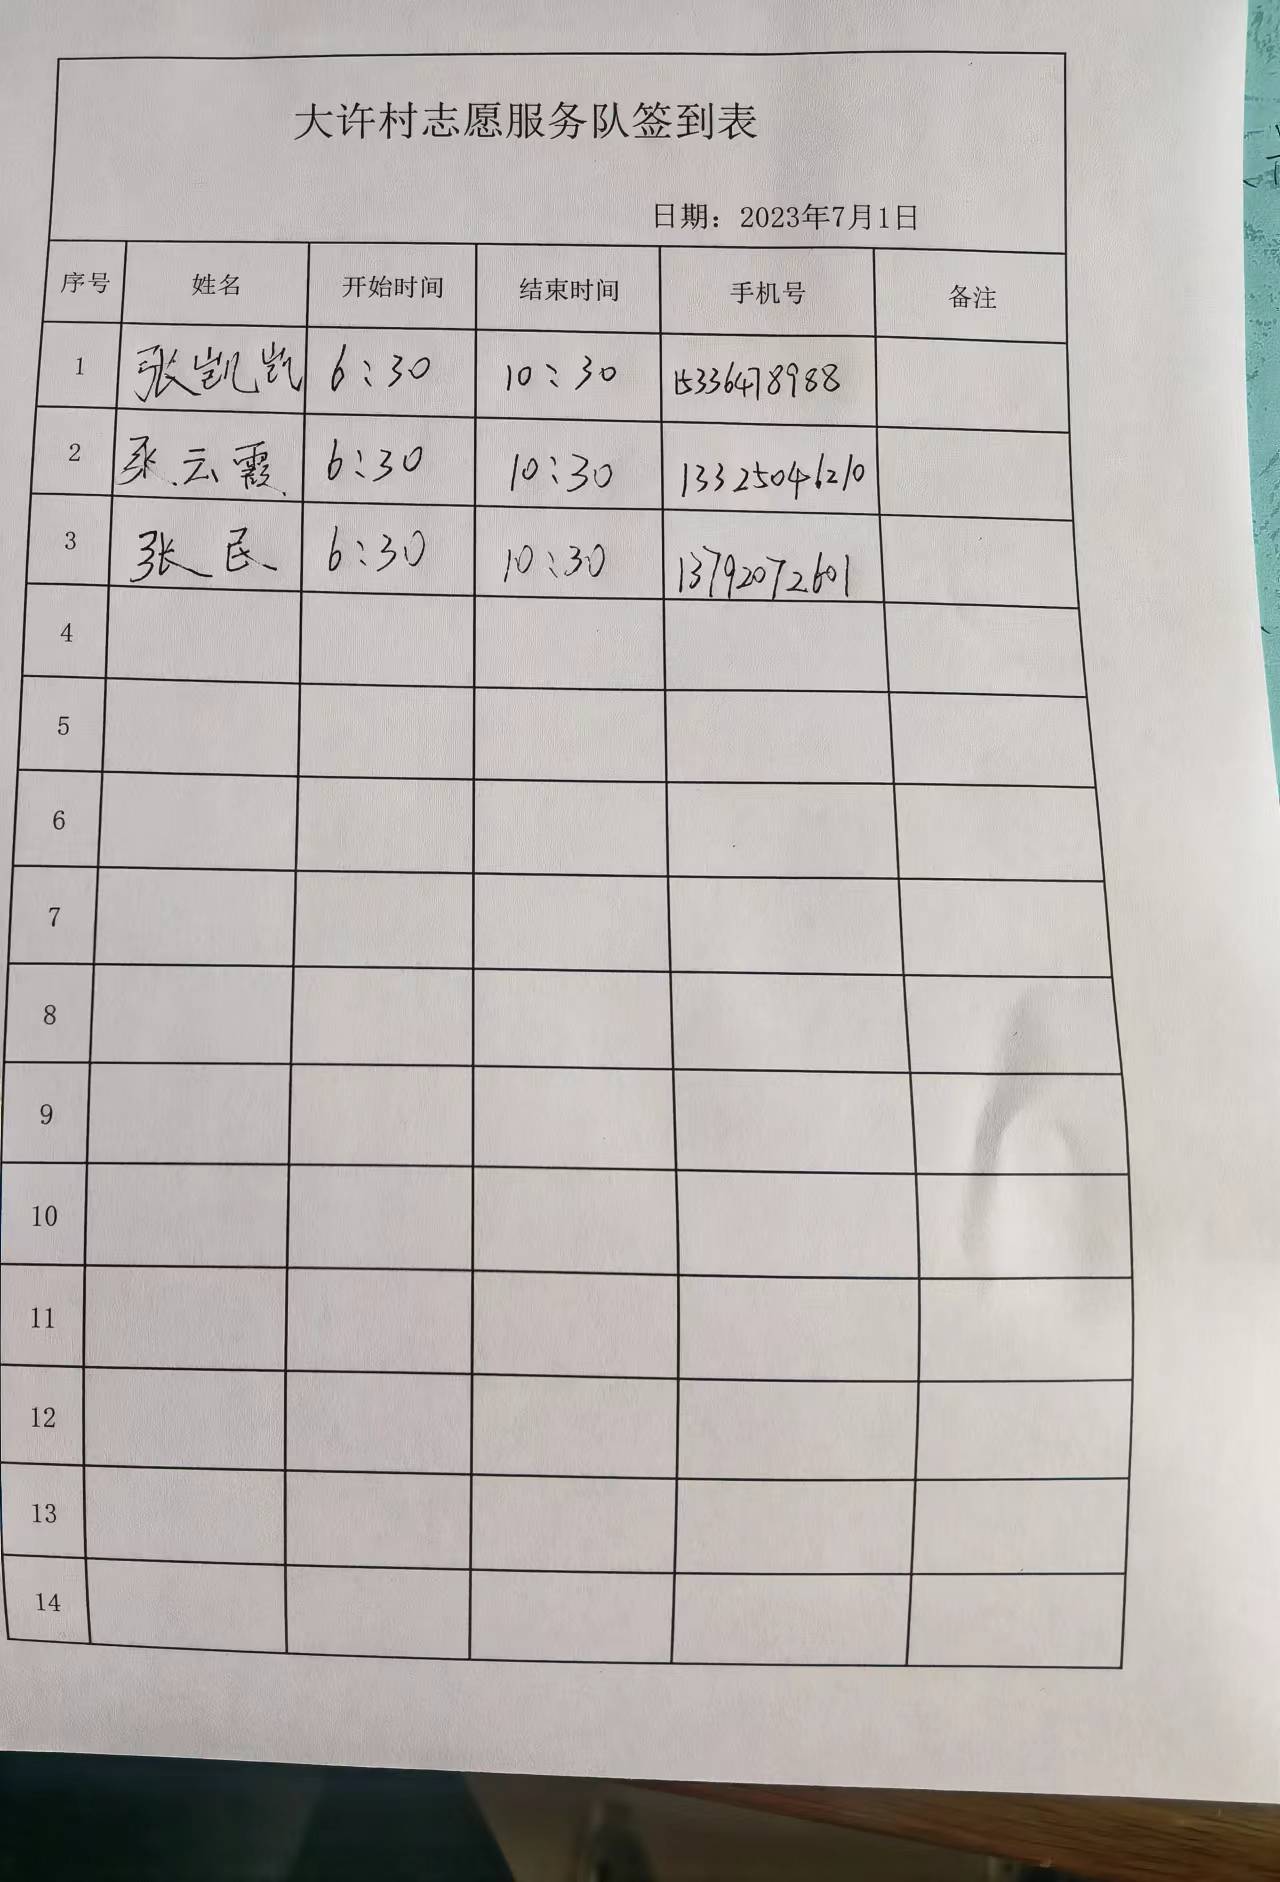 大许村志愿服务队签到表
日期：2023年7月1日
序号 姓名 开始时间 结束时间 手机号 备注
1 张凯凯 6:30 10:30 15336478988
2 张云霞 6:30 10:30 13325046210
3 张民 6:30 10:30 13792072601
4
5
6
7
8
9
10
11
12
13
14